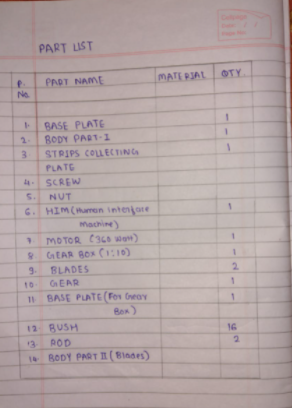 PART LIST
P. No. PART NAME MATERIAL QTY
1. BASE PLATE 1
2. BODY PART-I 1
3. STRIPS COLLECTING 1
PLATE
4. SCREW
5. NUT
6. HIM (Human interface 1
Machine)
7. MOTOR (360 Watt) 1
8 GEAR BOX (1:10) 1
9. BLADES 2
10. GEAR 1
11. BASE PLATE (For Gear 1
Box)
12. BUSH 16
13. ROD 2
14. BODY PART II (Blades)